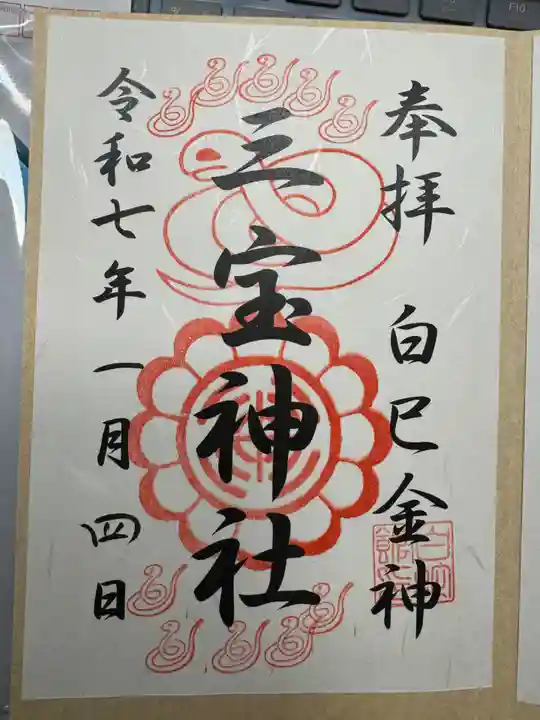 奉拝
白巳金神
三宝神社
令和七年一月四日
F10